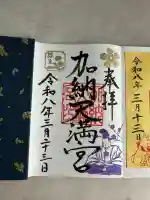 奉拝
加納天満宮
令和八年三月二十三日
令和八年
三月十三